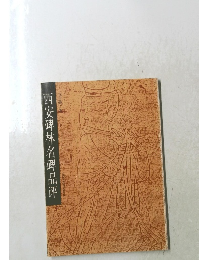 西安碑林 名碑品評